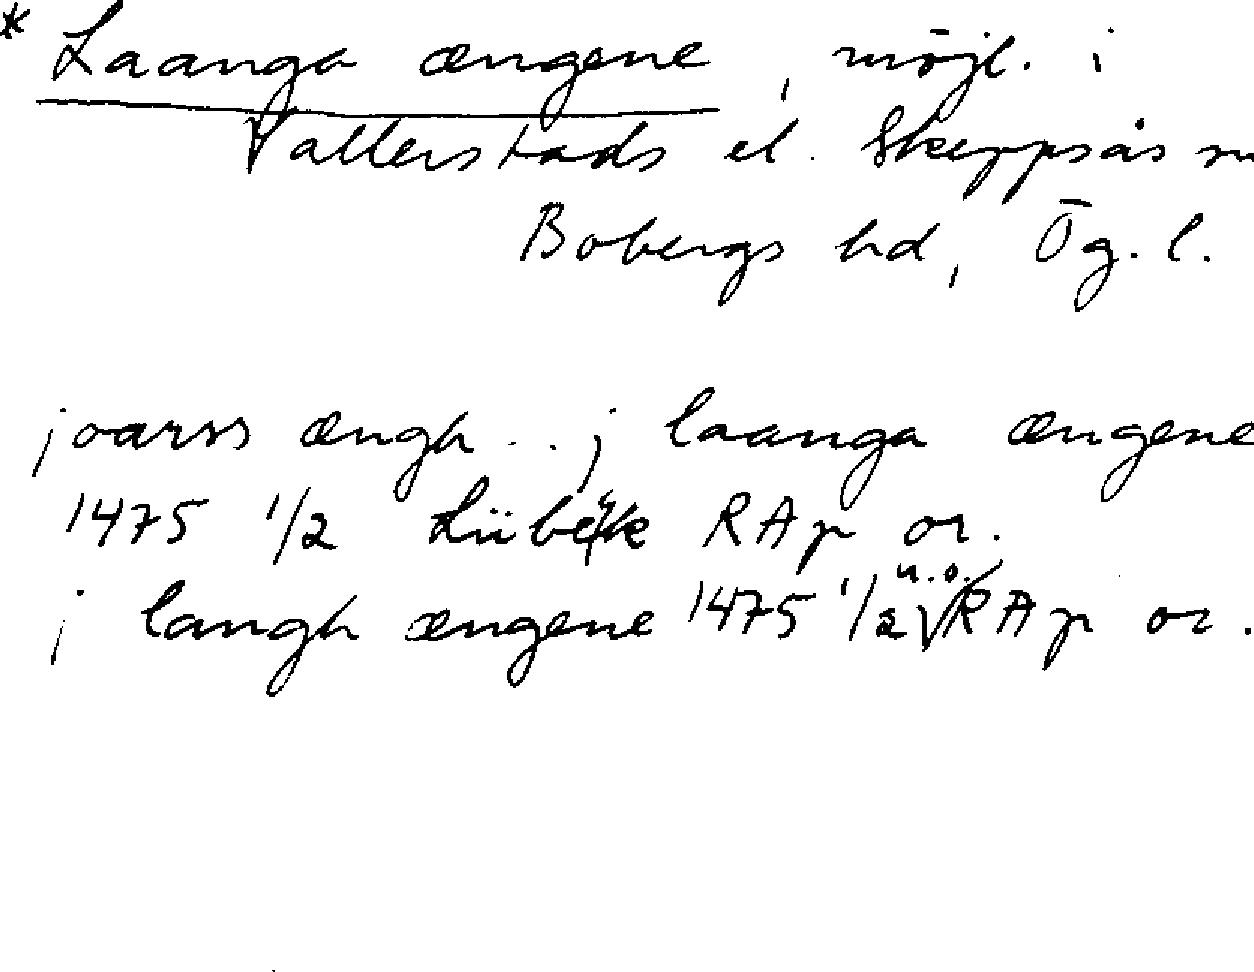 * Laanga ængene, möjl. i
Vallerstads el. Skeppsås sn
Bobergs hd, Ög. l.
joarss ængh .. j laanga ængene
1475 1/2 Lübeck RAp or.
j langh ængene 1475 1/2 u.o. RAp or.